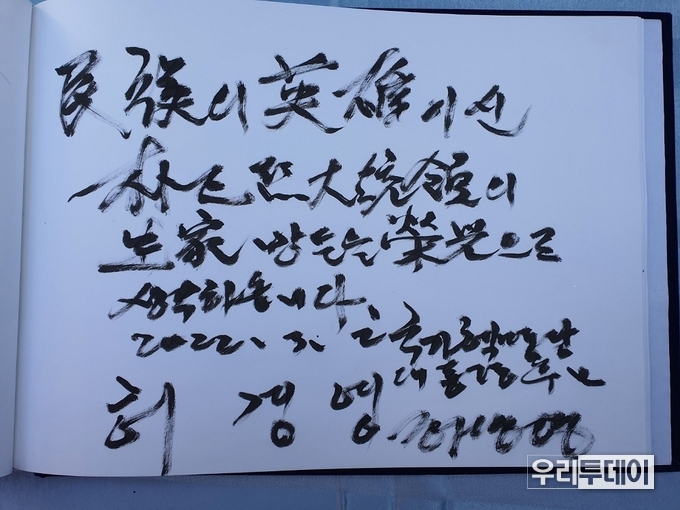 民族의 英雄이신
朴正熙大統領의
生家 방문을 榮光으로
생각하옵니다
2022. 3. 1
국가혁명당
대통령후보
허 경 영 허경영
우리투데이